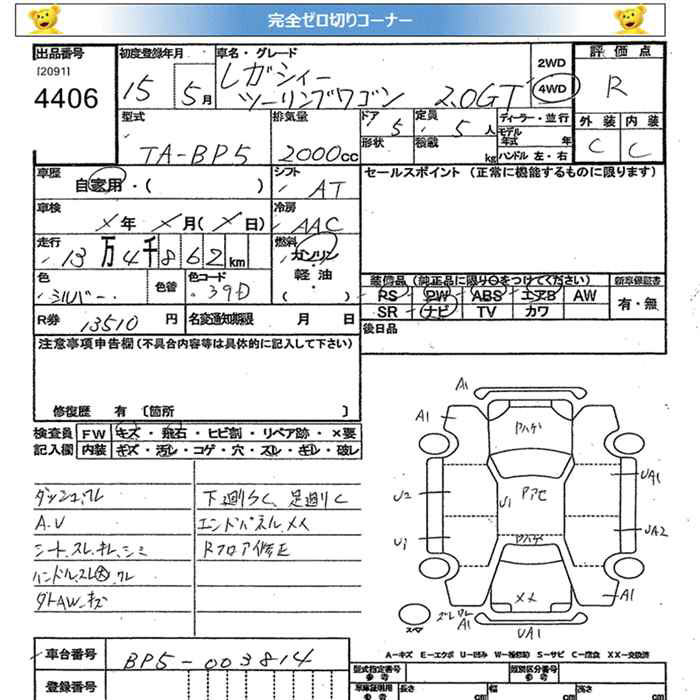 完全ゼロ切りコーナー
出品番号 初度登録年月 車名・グレード 2WD 評価点
[2091] レガシィー
4406 15 5月 ツーリングワゴン 2.0GT 4WD R
型式 排気量 ドア 5 定員 5人 ディーラー・並行 外装 内装
モデル年式 年
TA-BP5 2000cc 形状 積載 kg ハンドル 左・右 C C
車歴 シフト セールスポイント (正常に機能するものに限ります)
自家用・( ) AT
車検 冷房
メ年 メ月(メ日) AAC
走行 燃料
13万4千862km ガソリン
軽油
( )
色 色替 色コード 装備品(純正品に限り○をつけてください) 新車保証書
シルバー 39D PS PW ABS エアB AW 有・無
SR ナビ TV カワ
R券 13510円 名変通知期限 月 日 後日品
注意事項申告欄(不具合内容等は具体的に記入して下さい)
修復歴 有〔箇所 〕
検査員 FW キズ・飛石・ヒビ割・リペア跡・×要
記入欄 内装 キズ・汚レ・コゲ・穴・スレ・キレ・破レ
ダッシュ、ワレ 下廻りらく、足廻りく
A.V エンドパネル、メメ
シート、スレ、キレ、シミ Rフロア修正
ハンドル、スレ大、ワレ
クトAW、キズ
A1
A1
ワハゲ
U2 U1 Pアセ UA1
U1 ワハゲ UA2
メメ A1
スペア ズレ ワレ A1 UA1
A-キズ E-エクボ U-凹み W-補修跡 S-サビ C-腐食 XX-交換済
車台番号 BP5-003814 型式指定番号 参考 類別区分番号 参考
登録番号 車庫証明用 参考 長さ cm 幅 cm 高さ cm